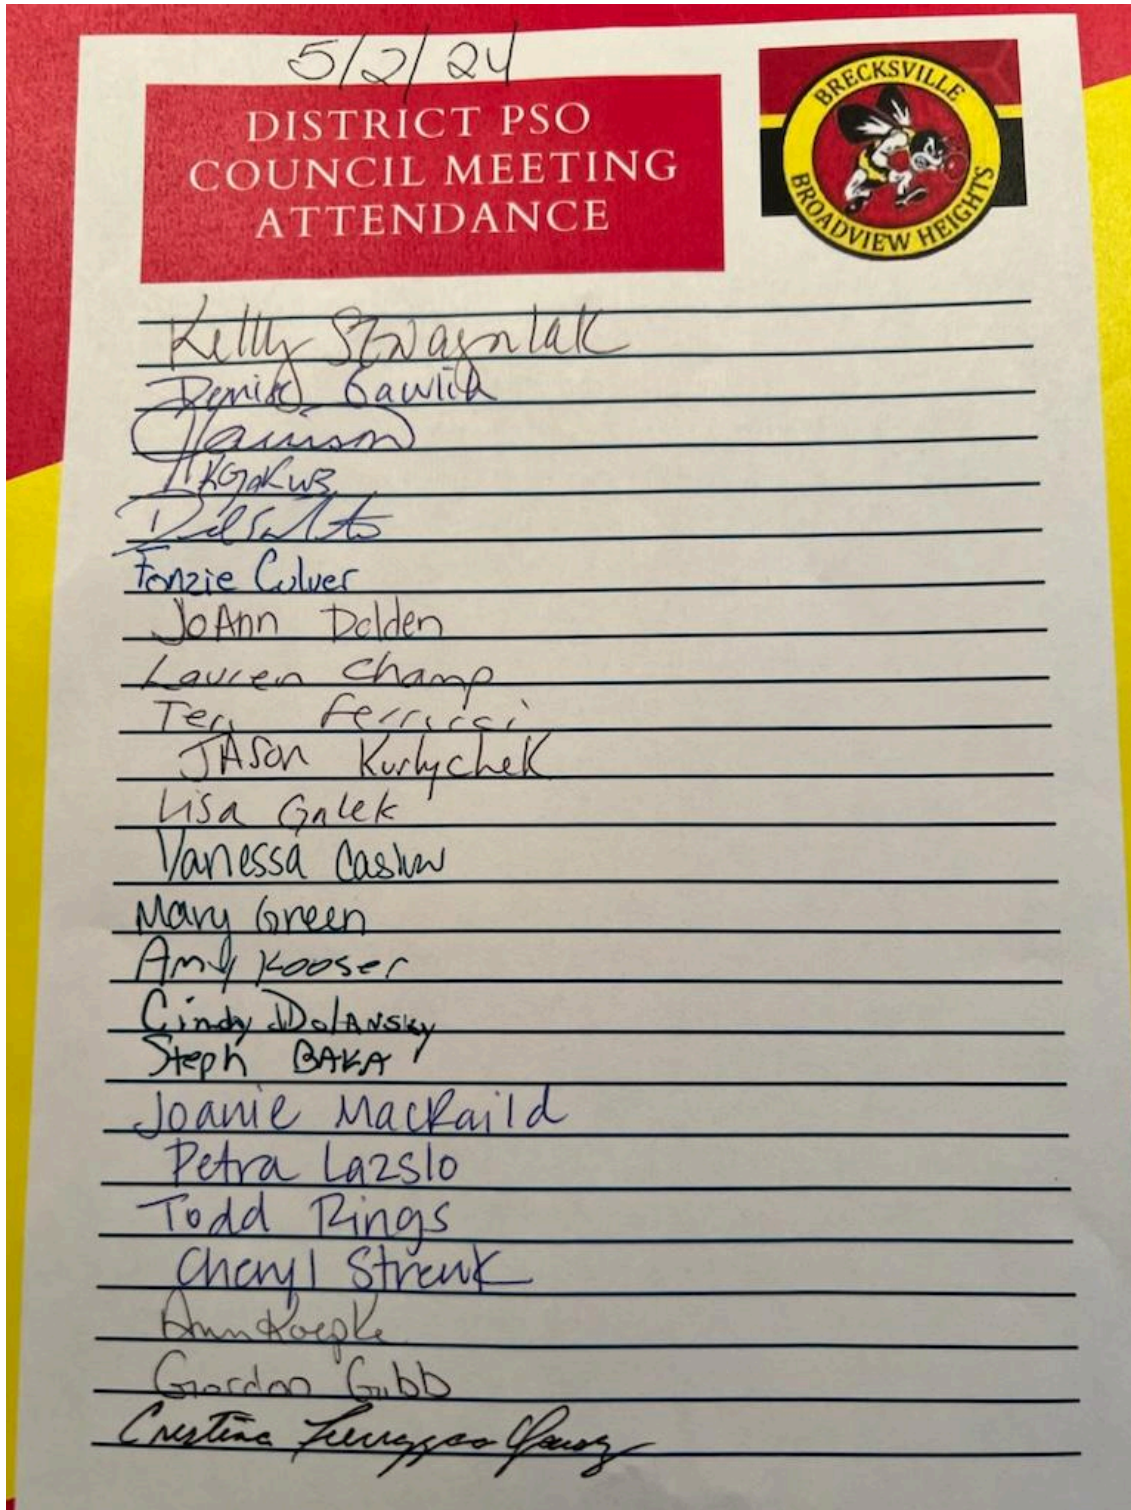 5/2/24
DISTRICT PSO
COUNCIL MEETING
ATTENDANCE
BRECKSVILLE
BROADVIEW HEIGHTS
Kelly
Denise Gawlik
Fonzie Culver
JoAnn Dolden
Lauren Champ
Teri Ferrucci
JASon Kurlychek
Lisa Galek
Vanessa
Mary Green
Amy Kooser
Cindy DolANSky
Steph BAKA
Joanie MacRaild
Petra Lazslo
Todd Rings
Cheryl Strenk
Ann Koepke
Gordon Gibb
Cristina